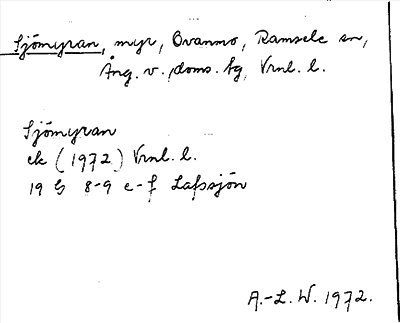 Sjömyran, myr, Ovanmo, Ramsele sn,
Ång. v. doms. tg, Vrnl. l.
Sjömyran
ek (1972) Vrnl. l.
19 G 8-9 e-f Lafssjön
A.-L. W. 1972.